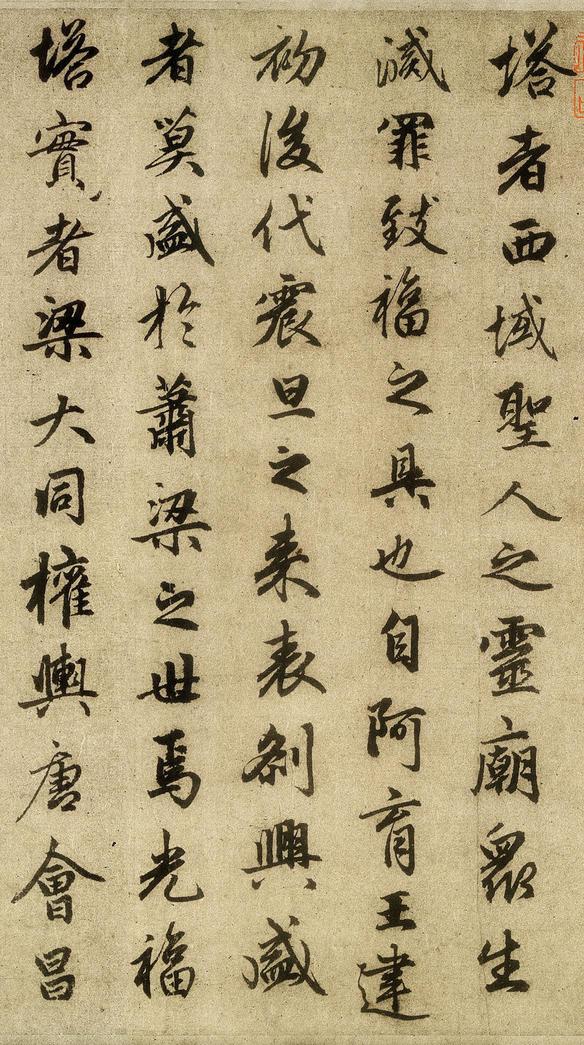 塔者西域聖人之靈廟眾生
滅罪致福之具也自阿育王建
初後代震旦之来表刹興盛
者莫盛於蕭梁之世焉光福
塔實者梁大同權輿唐會昌